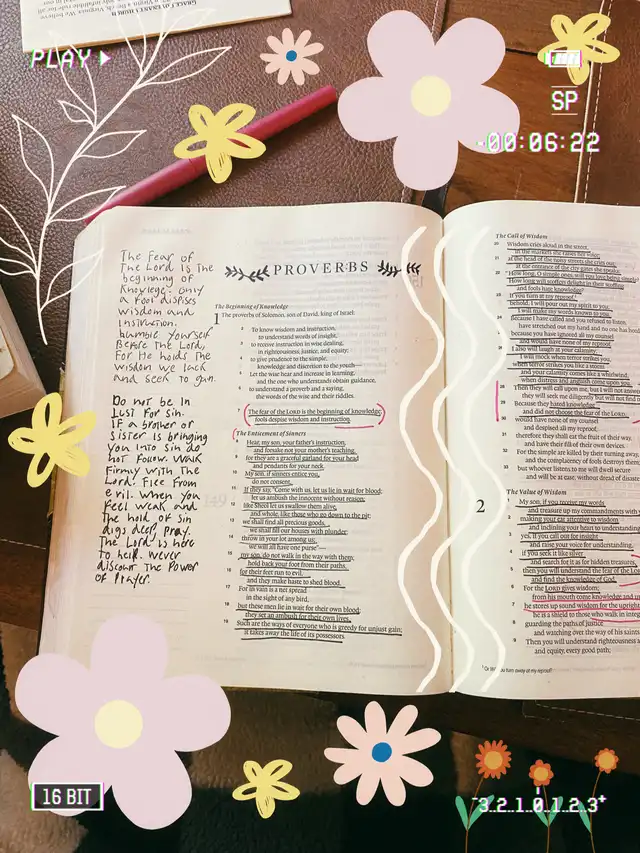 PLAY
SP
-00:06:22
The Fear of
The Lord is The
beginning of
Knowlege. Only
a fool dispises
wisdom and
Instruction.
Humble yourself
Before The Lord,
For He holds The
wisdom we lack
and seek to gain.
Do not be In
Lust For Sin.
IF a brother or
Sister is bringing
you into Sin do
not Follow. Walk
Firmly with The
Lord. Flee From
evil. When you
Feel weak and
The hold of Sin
digs deep, pray.
The Lord is Here
To help. Never
discount The Power
of Prayer.
PROVERBS
The Beginning of Knowledge
1 The proverbs of Solomon, son of David, king of Israel:
2 To know wisdom and instruction,
to understand words of insight,
3 to receive instruction in wise dealing,
in righteousness, justice, and equity;
4 to give prudence to the simple,
knowledge and discretion to the youth—
5 Let the wise hear and increase in learning,
and the one who understands obtain guidance,
6 to understand a proverb and a saying,
the words of the wise and their riddles.
7 The fear of the LORD is the beginning of knowledge;
fools despise wisdom and instruction.
The Enticement of Sinners
8 Hear, my son, your father's instruction,
and forsake not your mother's teaching,
9 for they are a graceful garland for your head
and pendants for your neck.
10 My son, if sinners entice you,
do not consent.
11 If they say, "Come with us, let us lie in wait for blood;
let us ambush the innocent without reason;
12 like Sheol let us swallow them alive,
and whole, like those who go down to the pit;
13 we shall find all precious goods,
we shall fill our houses with plunder;
14 throw in your lot among us;
we will all have one purse"—
15 my son, do not walk in the way with them;
hold back your foot from their paths,
16 for their feet run to evil,
and they make haste to shed blood.
17 For in vain is a net spread
in the sight of any bird,
18 but these men lie in wait for their own blood;
they set an ambush for their own lives.
19 Such are the ways of everyone who is greedy for unjust gain;
it takes away the life of its possessors.
The Call of Wisdom
20 Wisdom cries aloud in the street,
in the markets she raises her voice;
21 at the head of the noisy streets she cries out;
at the entrance of the city gates she speaks:
22 "How long, O simple ones, will you love being simple?
How long will scoffers delight in their scoffing
and fools hate knowledge?
23 If you turn at my reproof,
behold, I will pour out my spirit to you;
I will make my words known to you.
24 Because I have called and you refused to listen,
have stretched out my hand and no one has
25 because you have ignored all my counsel
and would have none of my reproof,
26 I also will laugh at your calamity;
I will mock when terror strikes you,
27 when terror strikes you like a storm
and your calamity comes like a whirlwind,
when distress and anguish come upon you.
28 Then they will call upon me, but I will
they will seek me diligently but will not find
29 Because they hated knowledge
and did not choose the fear of the LORD,
30 would have none of my counsel
and despised all my reproof,
31 therefore they shall eat the fruit of their way,
and have their fill of their own devices.
32 For the simple are killed by their turning away,
and the complacency of fools destroys them;
33 but whoever listens to me will dwell secure
and will be at ease, without dread of disaster.
The Value of Wisdom
2 My son, if you receive my words
and treasure up my commandments with
2 making your ear attentive to wisdom
and inclining your heart to understanding;
3 yes, if you call out for insight
and raise your voice for understanding,
4 if you seek it like silver
and search for it as for hidden treasures,
5 then you will understand the fear of the
and find the knowledge of God.
6 For the LORD gives wisdom;
from his mouth come knowledge and
7 he stores up sound wisdom for the upright;
he is a shield to those who walk in
8 guarding the paths of justice
and watching over the way of his saints.
9 Then you will understand righteousness
and equity, every good path;
16 BIT
-3..2..1..0..1..2..3+